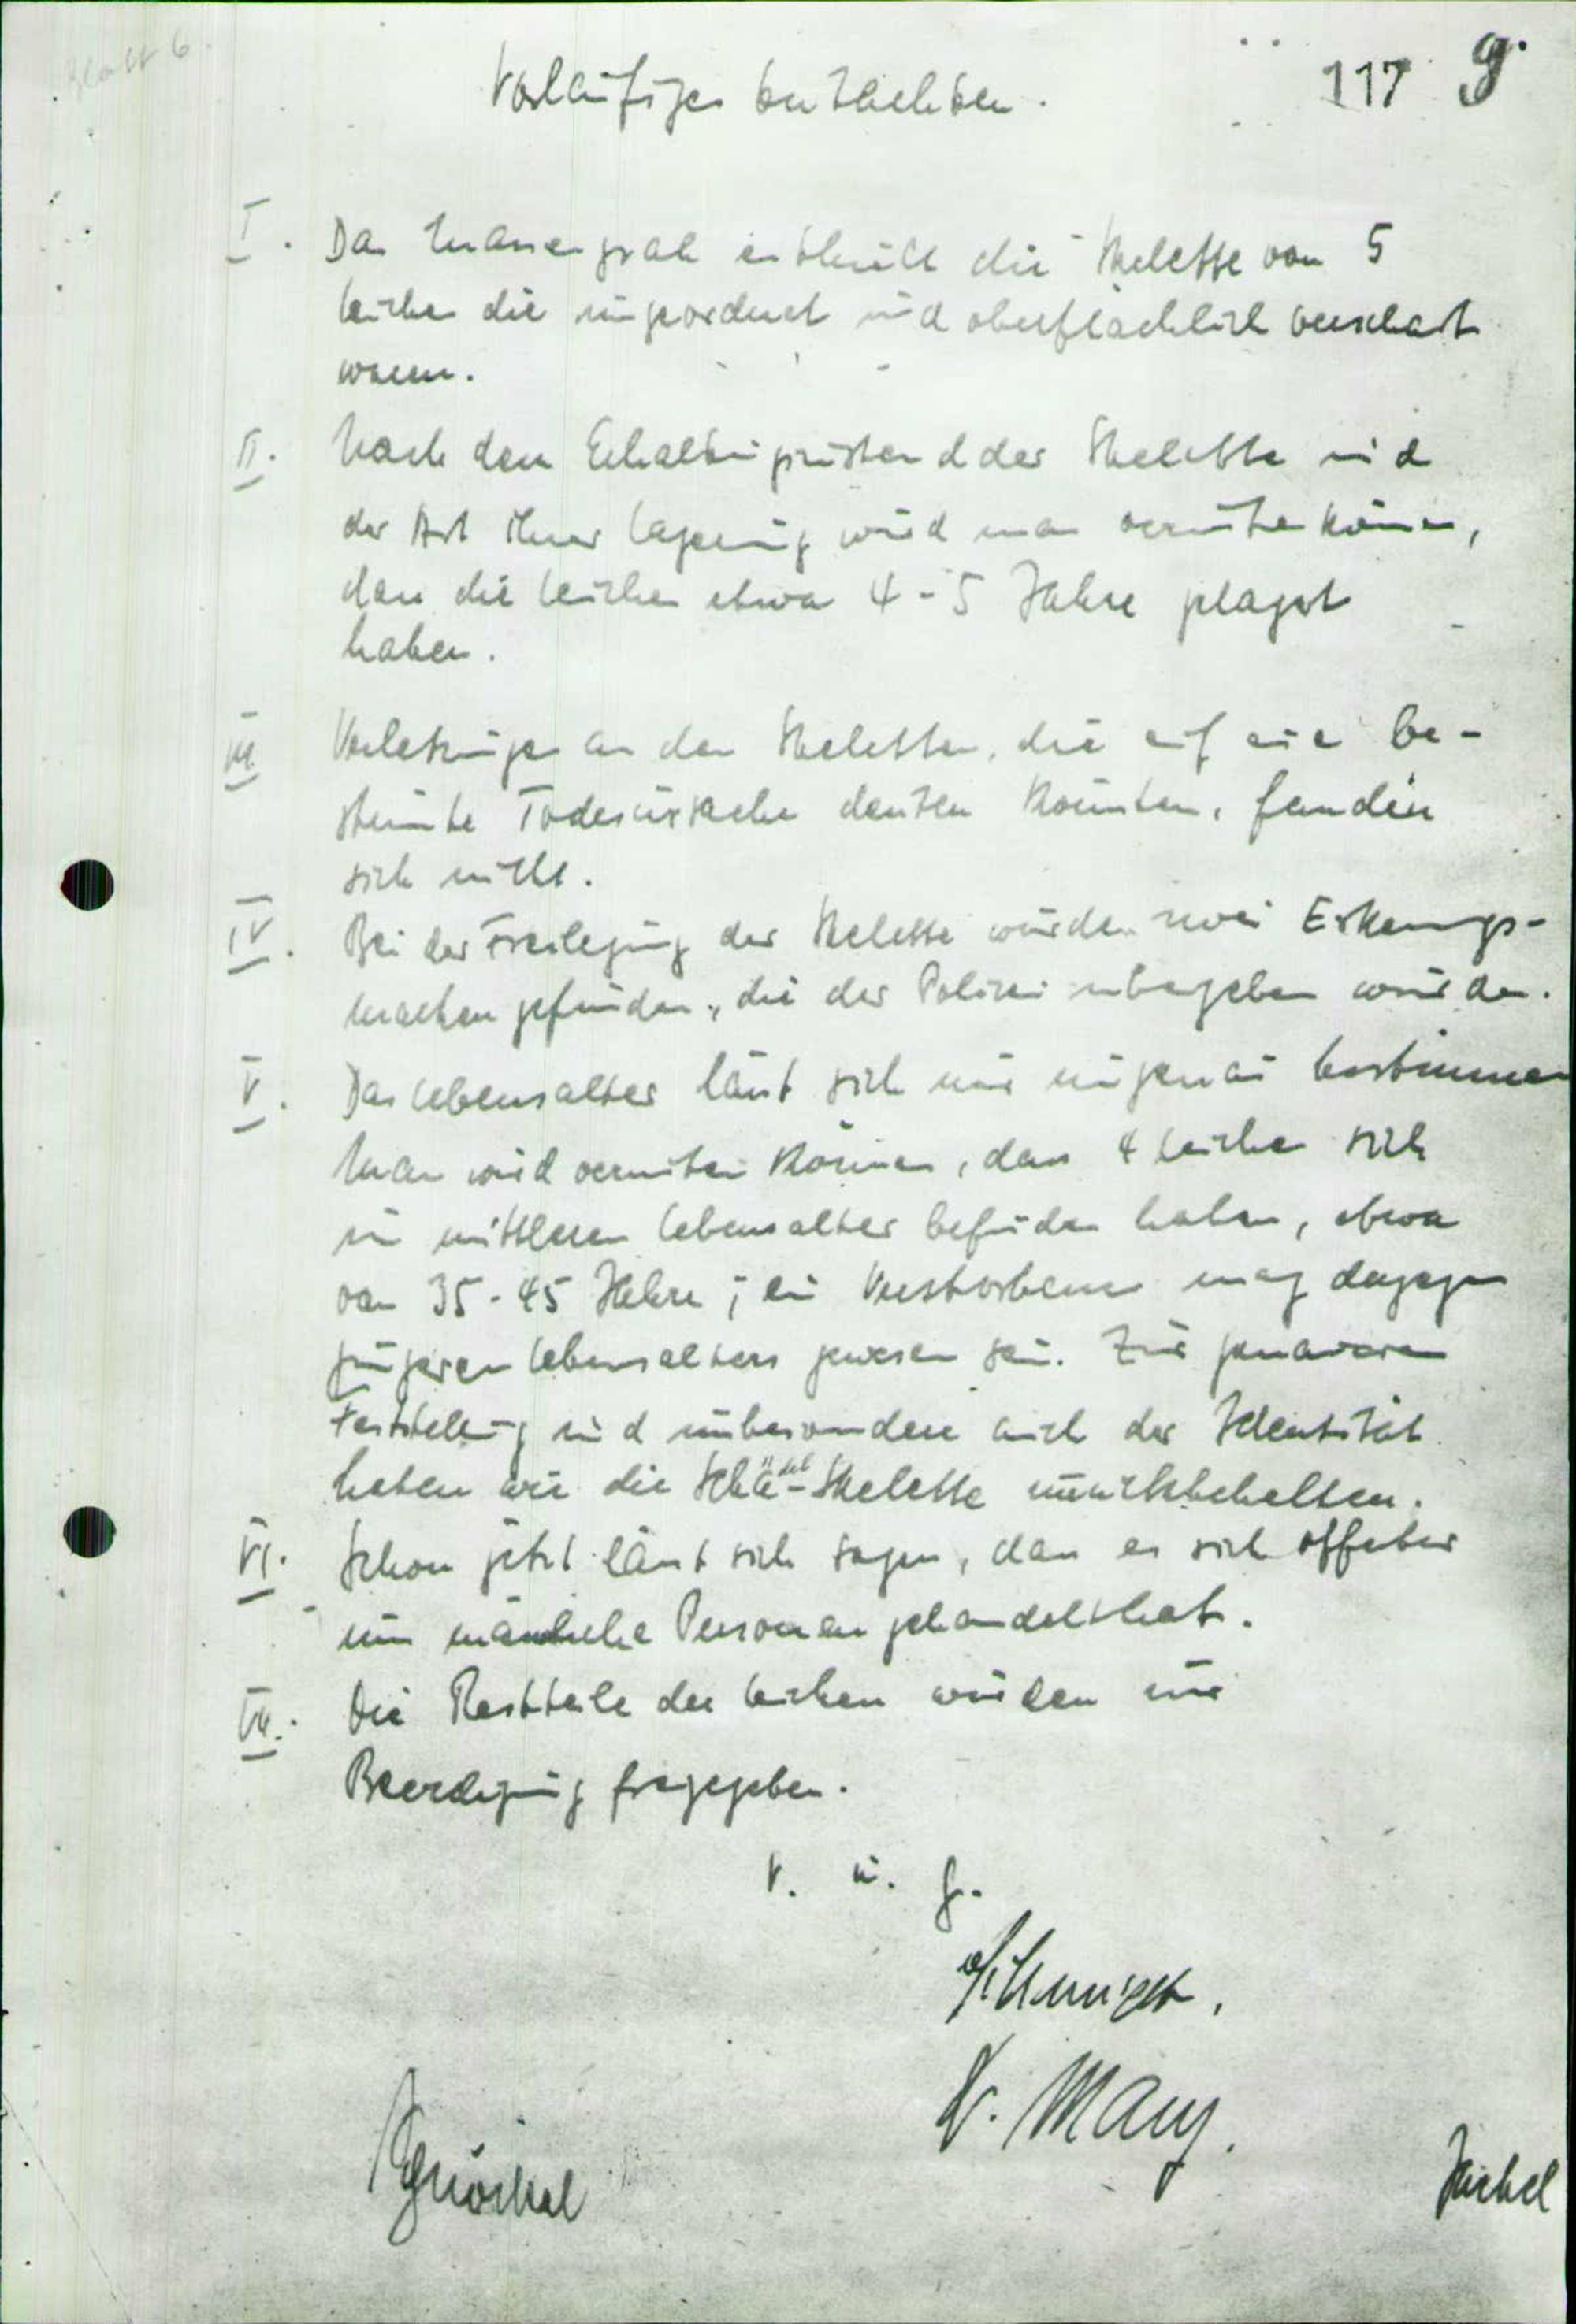 Blatt 6.
117 9.
Vorläufiges Gutachten.
I. Das Massengrab enthielt die Skelette von 5
Leichen die ungeordnet und oberflächlich verscharrt
waren.
II. Nach dem Erhaltungszustand der Skelette und
der Art ihrer Lagerung wird man vermuten können,
dass die Leichen etwa 4-5 Jahre gelagert
haben.
III Verletzungen an den Skeletten, die auf eine be-
stimmte Todesursache deuten könnten, fanden
sich nicht.
IV. Bei der Freilegung der Skelette wurden zwei Erkennungs-
marken gefunden, die der Polizei übergeben wurden.
V. Das Lebensalter lässt sich nur ungenau bestimmen
Man wird vermuten können, dass 4 Leichen sich
im mittleren Lebensalter befunden haben, etwa
von 35-45 Jahre; ein Verstorbener mag dagegen
jüngeren Lebensalters gewesen sein. Zur genaueren
Feststellung und insbesondere auch der Identität
haben wir die Schädel-Skelette zurückbehalten.
VI. Schon jetzt lässt sich sagen, dass es sich offenbar
um männliche Personen gehandelt hat.
VII. Die Restteile der Leichen wurden zur
Beerdigung freigegeben.
v. u. g.
Dr. Manz.